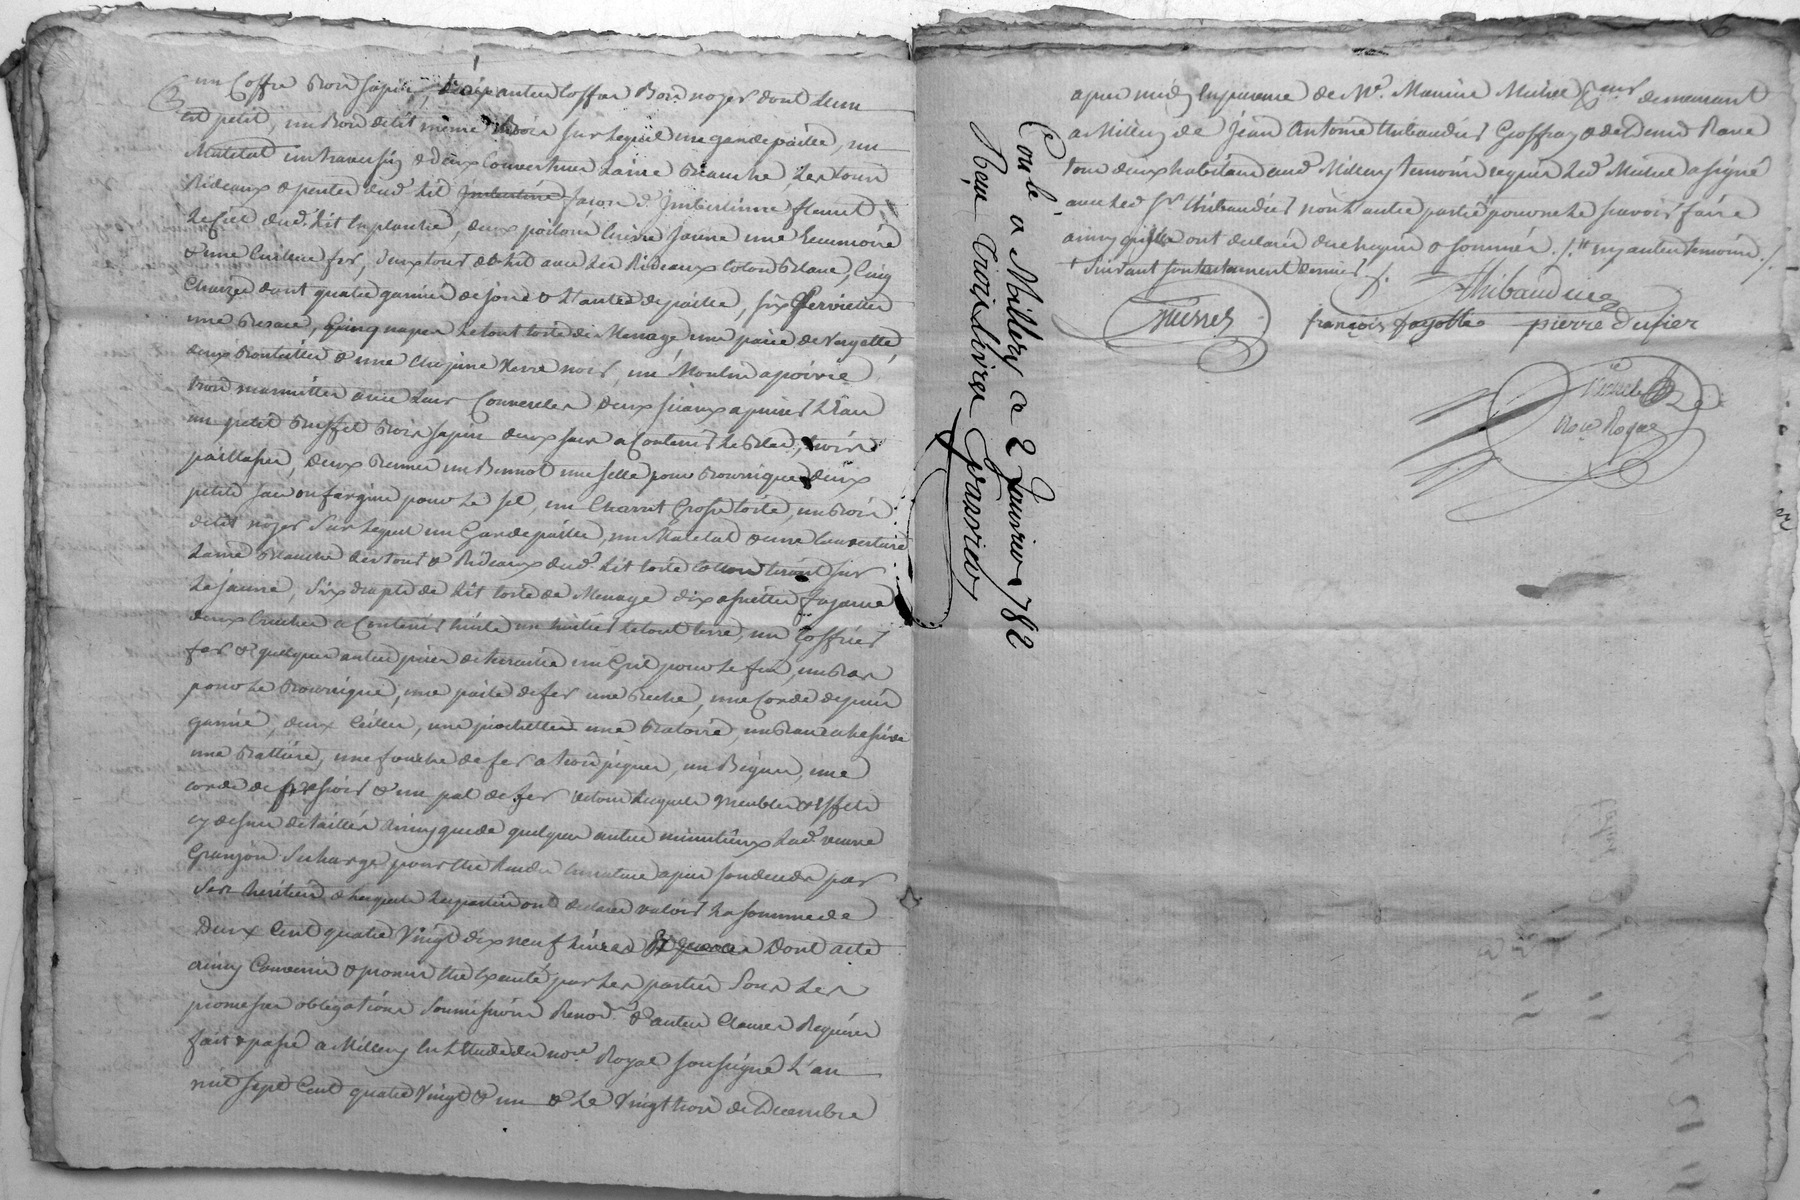 un Coffre Bois sapin, deux autres Coffres Bois noyer dont l'un
est petit, un Bois de lit même Bois sur lequel une gardepaille, un
Matelat un traversin & deux Couvertures Laine Blanche, Les tours
Rideaux & pentes dud. lit Imbertine façon d'Imbertinne fleuret
Le Ciel dud. lit en planche, deux poilons Cuivre Jaune une Ecumoire
& une Cuilière fer, deux tours de lit avec les Rideaux Coton Blanc, Cinq
Chaizes dont quatre garnies de jonc & l'autre de paille, six Serviettes
une Besace, Cinq napes le tout toile de Menage une paire de Vergette
deux Bouteilles & une Chopine Verre noir, un Moulin a poivre
trois marmittes avec leurs Couvercles deux siaux a puiser L'eau
un petit Buffet Bois sapin deux sacs a Contenir le Bled, trois
paillasses, deux Bennes un Bennot une selle pour Bourrique deux
petits sacs ou fargine pour le sel, un Charret Grosse toile, un Bois
de lit noyer sur lequel un Gardepaille, un Matelat & une Couverture
Laine Blanche les tours & Rideaux dud. lit toile Cotton tirant sur
Le jaune, six draps de lit toile de Menage dix assiettes fayance
deux Cruches a Contenir huile un huilier le tout terre, un Coffrier
fer & quelques autres pieces de terraille un Gril pour le feu, un Bas
pour la Bourrique, une poile de fer une Beche, une Corde de puis
garnie, deux une piochette une un Banc a lessive
une une fourche de fer a trois piques, un Bigou, une
corde de pressoir & un pal de fer de tous lesquels Meubles & Effets
cy dessus detaillés ainsy que de quelques autres minutieux lad. veuve
Granjon se charge pour être Rendus en nature apres son deceds par
ses heritiers & lesquels les parties ont declarés valoir la somme de
Deux Cent quatre Vingt dix neuf livres Dont acte
ainsy Convenu & promis être Exauté par les parties sous les
promesses obligations soumissions Renons. & autres Clauses Requises
fait & passé a Millery en L'Etude du nore. Royal soussigné L'an
mil sept Cent quatre Vingt & un & le Vingt trois de Decembre
apres midy En presence de Mr. Maurice Meusel demeurant
a Millery de Jean Antoine Thibaudier Geoffray & de Denis Rave
tous deux habitans aud. Millery temoins requis led. Meusel a signé
avec led. Sr. Thibaudier non les autres parties pour ne le sçavoir faire
ainsy qu'elles ont declaré de ce requis & sommés. ny autres temoins
suivant son testament dernier
Thibaudier
françois fayolle pierre Dufier
Nore. Royal
Conlé a Millery Le 2 Janvier 1782
Reçu trois Livres